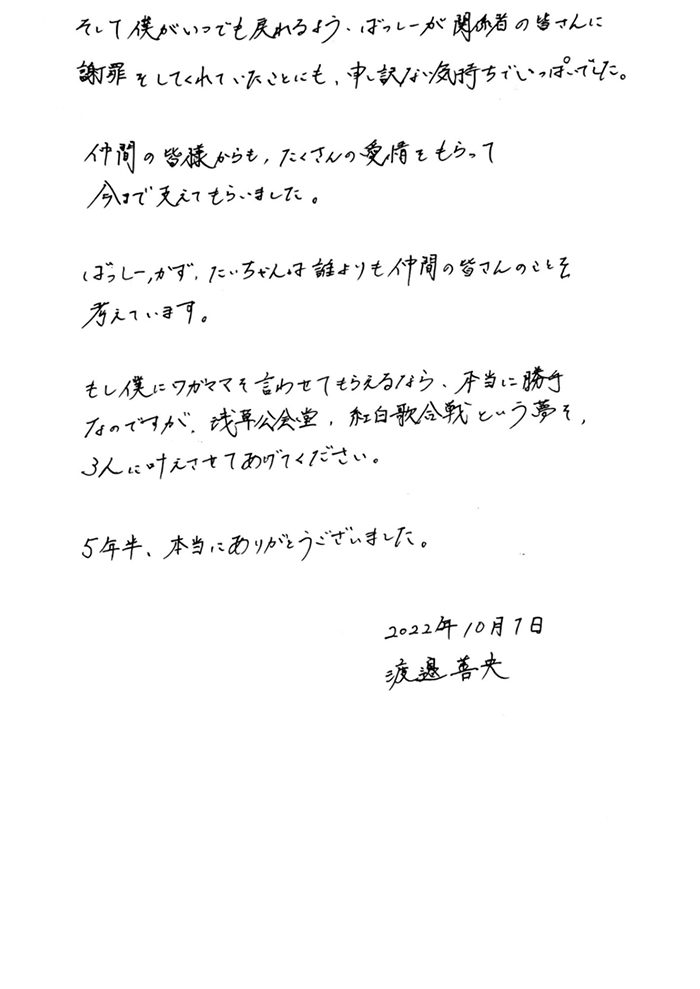 そして僕がいつでも戻れるよう、ばっしーが関係者の皆さんに
謝罪をしてくれていたことにも、申し訳ない気持ちでいっぱいでした。
仲間の皆様からも、たくさんの愛情をもらって
今まで支えてもらいました。
ばっしー、かず、たいちゃんは誰よりも仲間の皆さんのことを
考えています。
もし僕にワガママを言わせてもらえるなら、本当に勝手
なのですが、浅草公会堂、紅白歌合戦という夢を、
3人に叶えさせてあげてください。
5年半、本当にありがとうございました。
2022年10月7日
渡邉善央